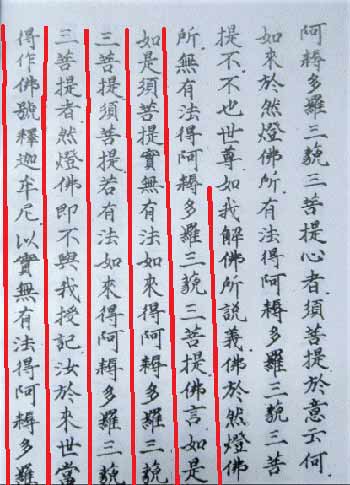 阿耨多羅三藐三菩提心者須菩提於意云何
如來於然燈佛所有法得阿耨多羅三藐三菩
提不不也世尊如我解佛所說義佛於然燈佛
所無有法得阿耨多羅三藐三菩提佛言如是
如是須菩提實無有法如來得阿耨多羅三藐
三菩提須菩提若有法如來得阿耨多羅三藐
三菩提者然燈佛即不與我授記汝於來世當
得作佛號釋迦牟尼以實無有法得阿耨多羅